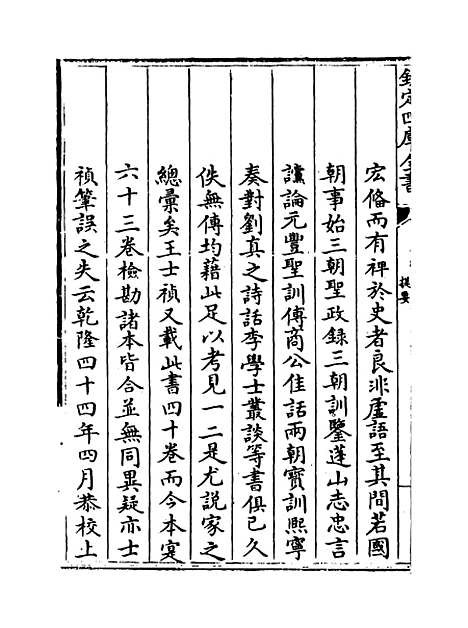 欽定四庫全書
提要
宏偹而有裨於史者良非虛語至其間若國
朝事始三朝聖政録三朝訓鑒蓬山志忠言
讜論元豐聖訓傅商公佳話兩朝寶訓熙寧
奏對劉真之詩話李學士叢談等書俱已久
佚無傳均藉此足以考見一二是尤説家之
總彚矣王士禎又載此書四十卷而今本寔
六十三卷檢勘諸本皆合並無同異疑亦士
禎筆誤之失云乾隆四十四年四月恭校上